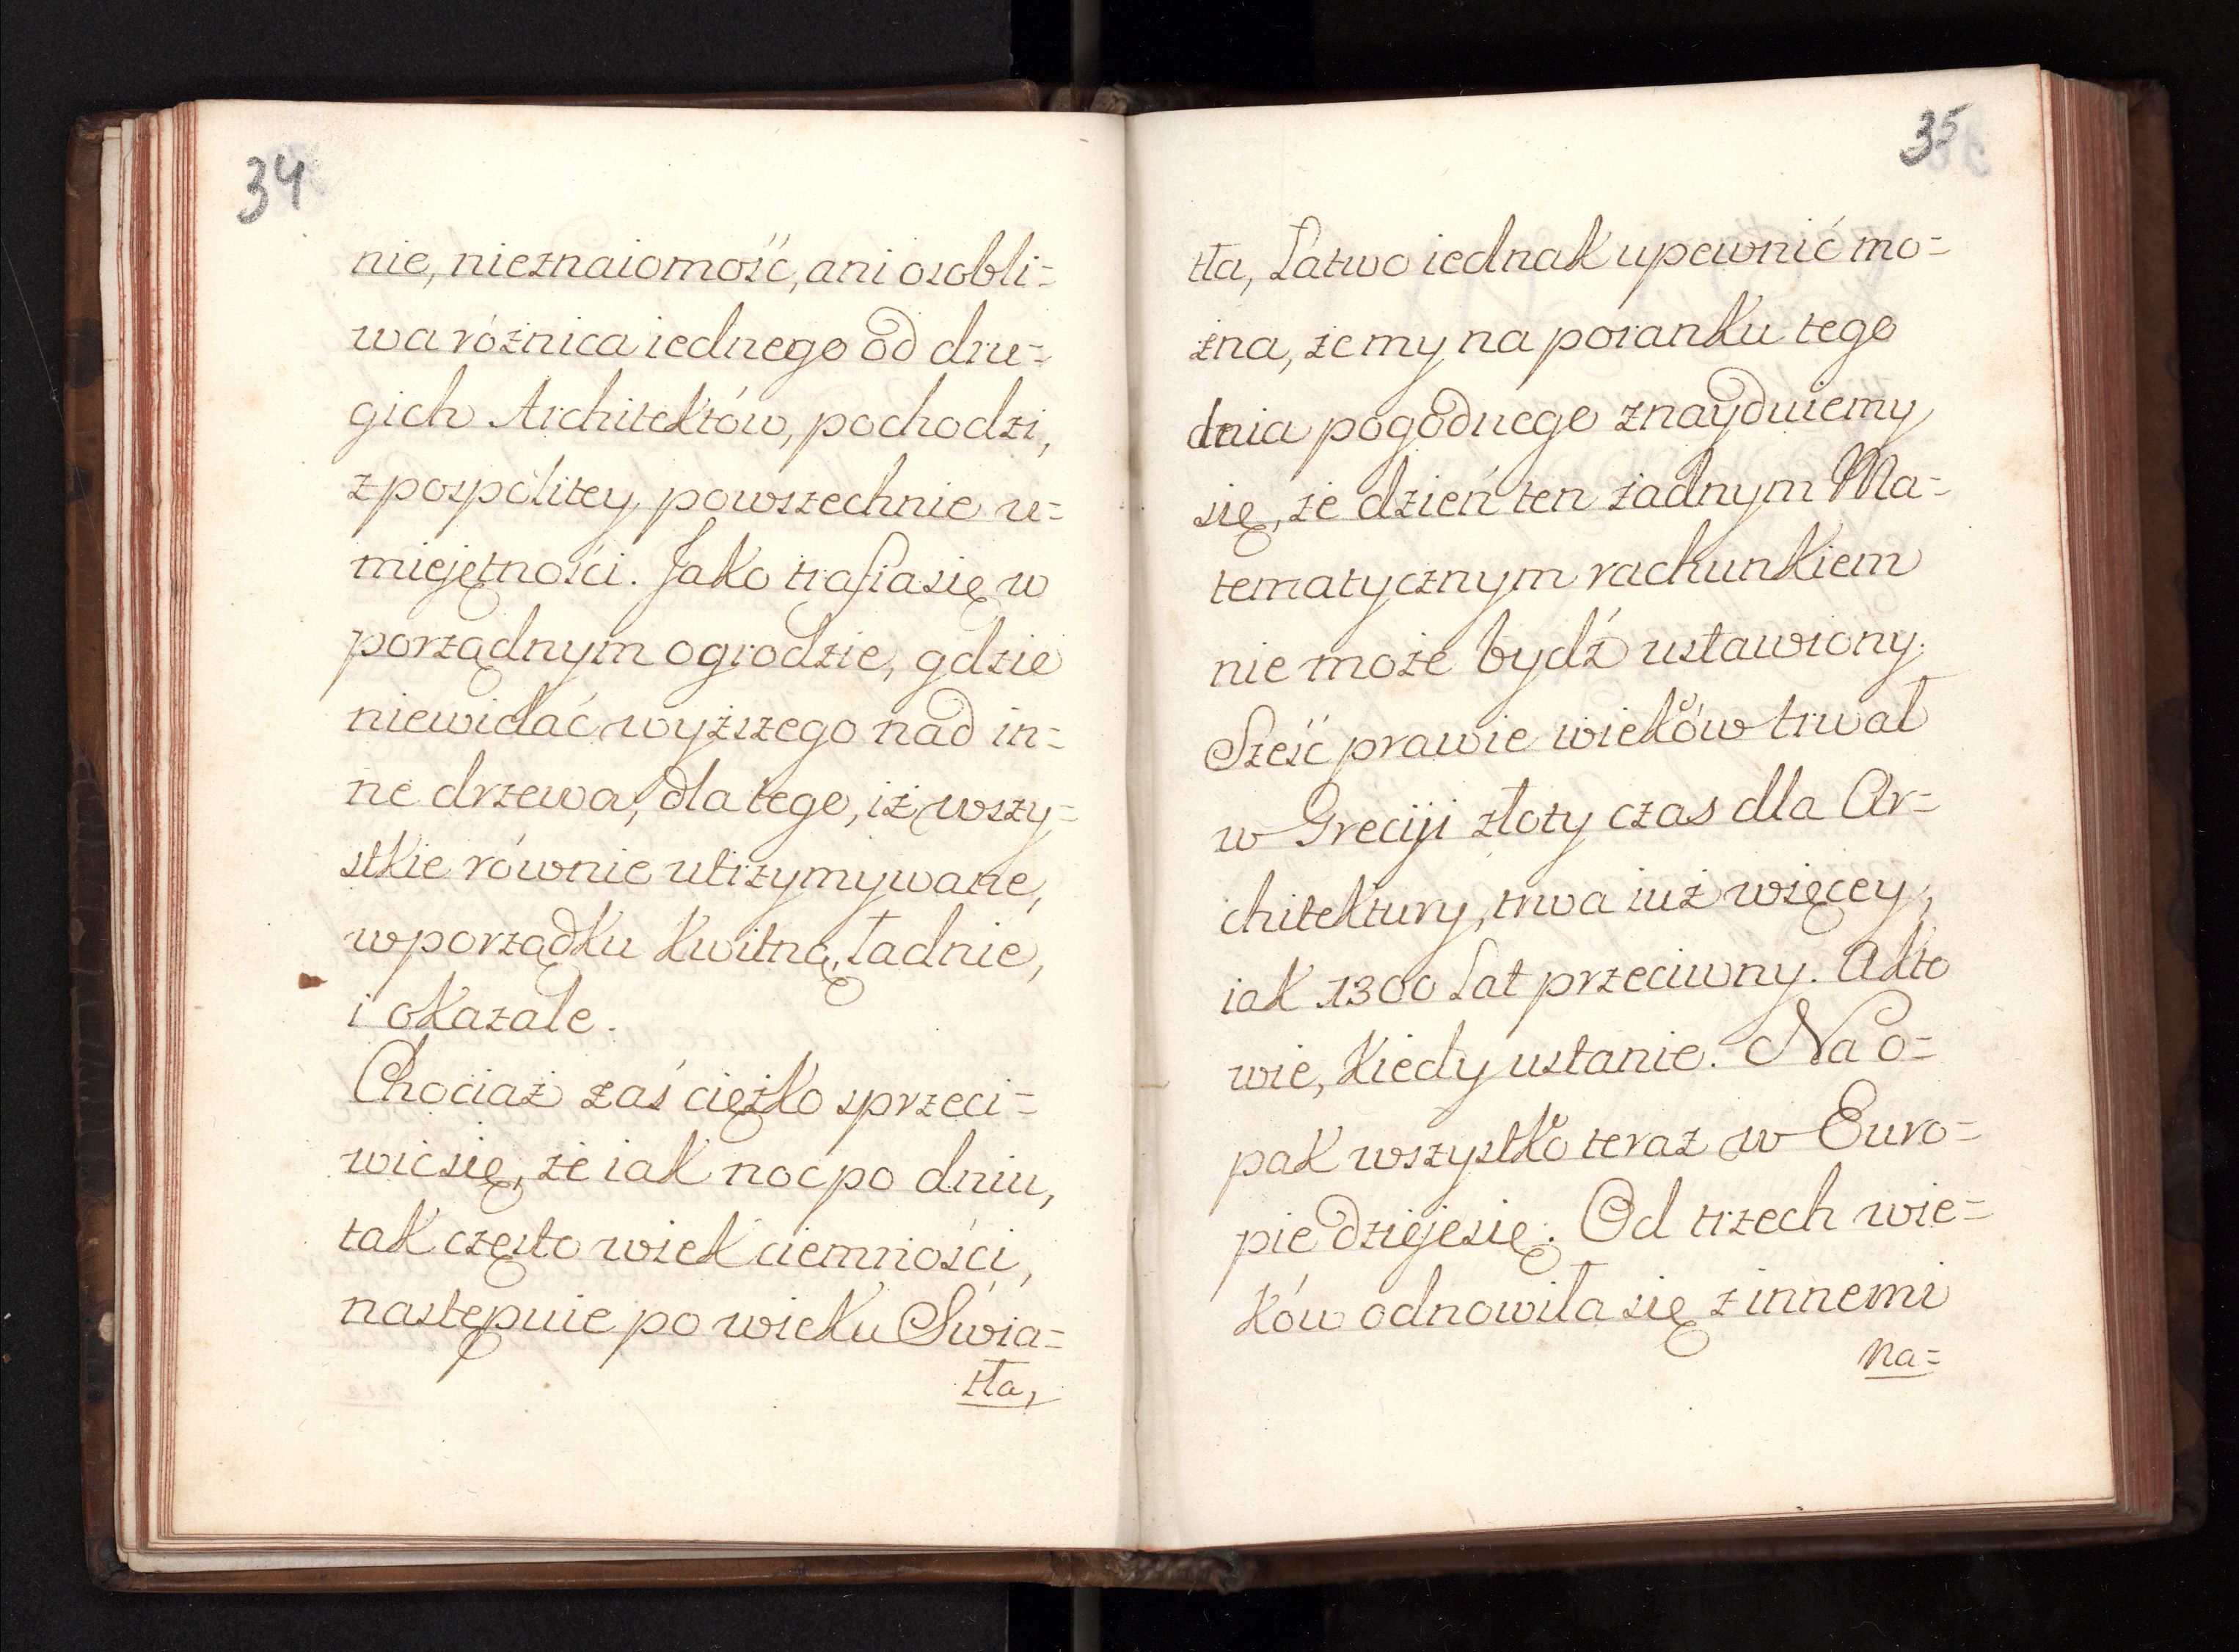 34
nie, nieznaiomość, ani osobli=
wa różnica iednego od dru=
gich Architektów, pochodzi,
z pospolitey, powszechnie u=
miejętności. Jako trafia się w
porządnym ogrodzie, gdzie
niewidać wyższego nad in=
ne drzewa, dla tego, iż wszy=
stkie równie utrzymywane,
w porządku kwitną, ładnie,
i okazale.
Chociaż zaś ciężko sprzeci=
wić się, że iak noc po dniu,
tak często wiek ciemności,
następuie po wieku Świa=
tła,
35
tła, Łatwo iednak upewnić mo=
żna, że my na poranku tego
dnia pogodnego znayduiemy
się, że dzień ten żadnym Ma=
tematycznym rachunkiem
nie może bydź ustawiony.
Sześć prawie wieków trwał
w Greciji złoty czas dla Ar=
chitektury, trwa iuż więcey,
iak 1300 Lat przeciwny. A kto
wie, kiedy ustanie. Na o=
pak wszystko teraz w Euro=
pie dzieje się. Od trzech wie=
ków odnowiła się z innemi
na=